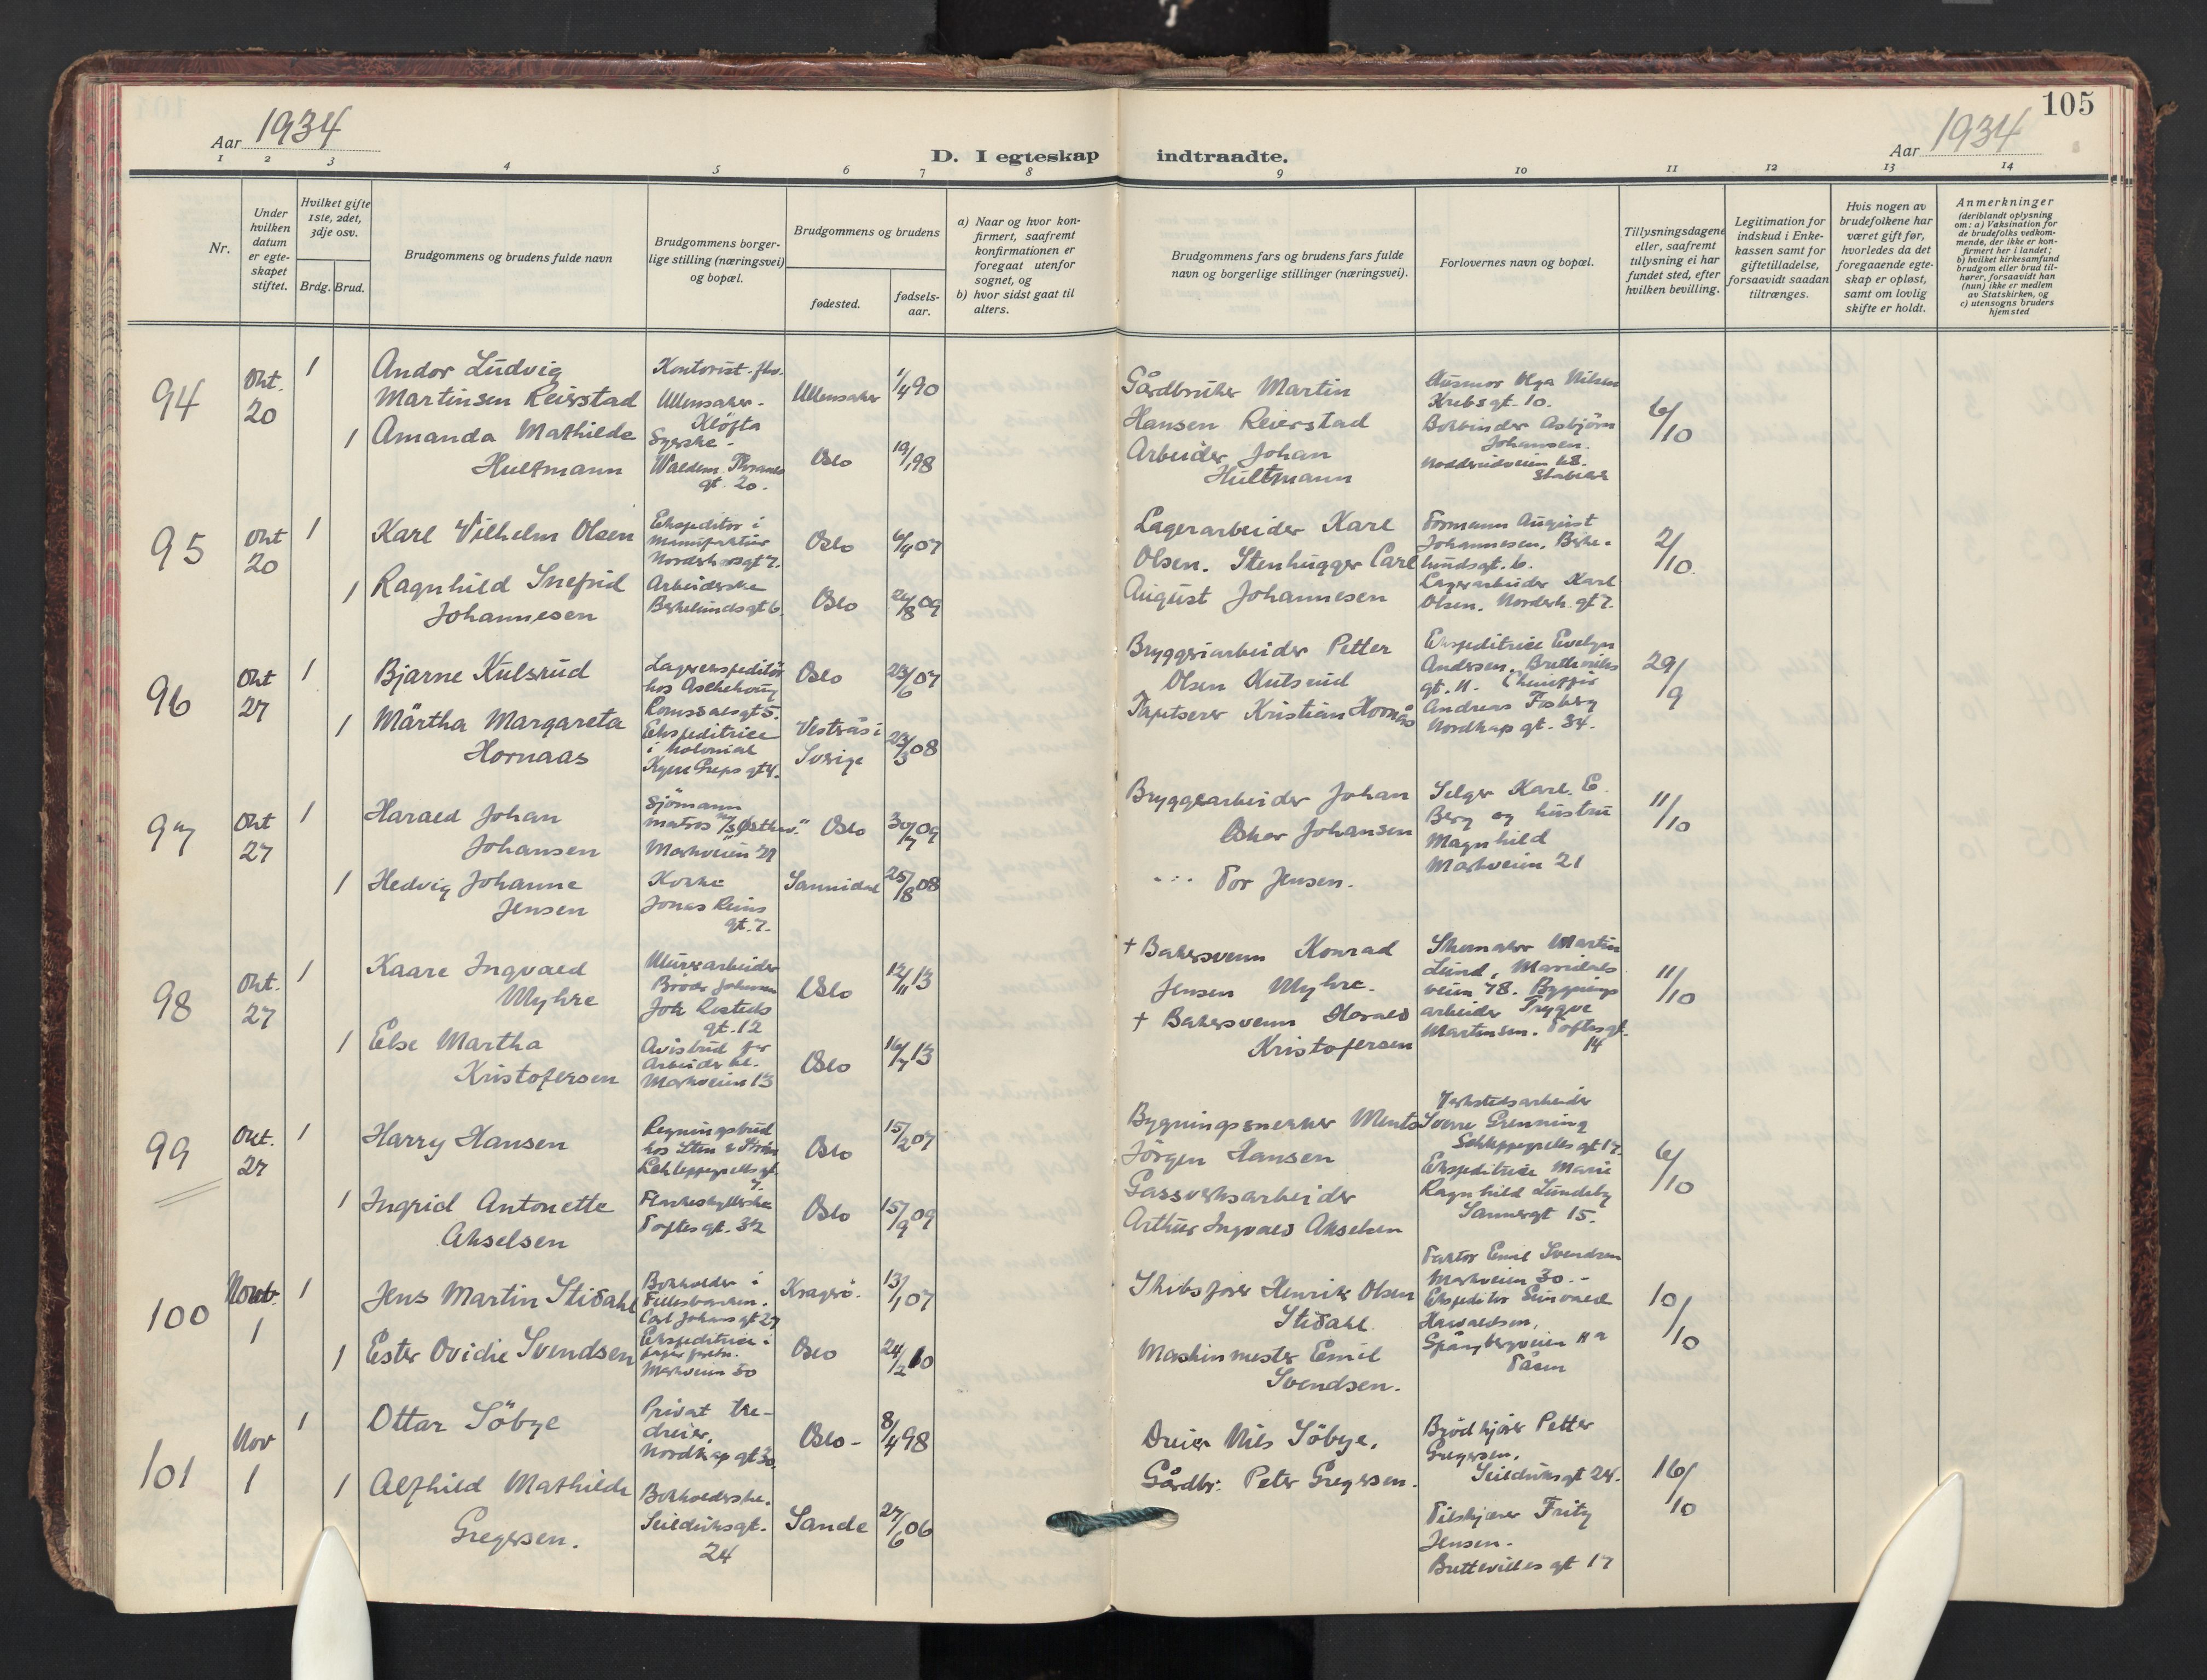 105
Aar 1934
D. I egteskap indtraadte.
Aar 1934
1 2 3 4 5 6 7 8 9 10 11 12 13 14
Nr.
Under hvilken datum er egte-skapet stiftet.
Hvilket gifte 1ste, 2det, 3dje osv.
Brdg. Brud.
Brudgommens og brudens fulde navn
Brudgommens borger-lige stilling (næringsvei) og bopæl.
Brudgommens og brudens
fødested.
fødsels-aar.
a) Naar og hvor kon-firmert, saafremt konfirmationen er foregaat utenfor sognet, og
b) hvor sidst gaat til alters.
Brudgommens fars og brudens fars fulde navn og borgerlige stillinger (næringsvei).
Forlovernes navn og bopæl.
Tillysningsdagene eller, saafremt tillysning ei har fundet sted, efter hvilken bevilling.
Legitimation for indskud i Enke-kassen samt for giftetilladelse, forsaavidt saadan tiltrænges.
Hvis nogen av brudefolkene har været gift før, hvorledes da det foregaaende egte-skap er opløst, samt om lovlig skifte er holdt.
Anmerkninger
(deriblandt oplysning om: a) Vaksination for de brudefolks vedkom-mende, der ikke er kon-firmert her i landet; b) hvilket kirkesamfund brudgom eller brud til-hører, forsaavidt han (hun) ikke er medlem av Statskirken, og c) utensogns bruders hjemsted
94 Okt. 20
1 Andor Ludvig
Martinsen Reierstad
Kontorist
Ullensaker -
Kløfta
Ullensaker
1/4 90
Gårdbruker Martin
Hansen Reierstad
Olga Nilsen
Krebsgt. 10.
6/10
1 Amanda Mathilde
Hultmann
Syerske -
Waldem. Thranes
gt. 20.
Oslo
19/1 98
Arbeider Johan
Hultmann
Bokbinder Asbjørn
Johansen.
Stabekk
95 Okt 20
1 Karl Vilhelm Olsen
Ekspeditør i
manufaktur
gt 7.
Oslo
6/4 07
Lagerarbeider Karl
Olsen. Stenhugger Carl
August Johannesen
Formann August
Johannesen, Birke-
lundsgt. 6.
Lagerarbeider Karl
Olsen. Norderh. gt 7.
2/10
1 Ragnhild Snefrid
Johannesen
Arbeiderske
Birkelundsgt 6.
Oslo
09
96 Okt 27
1 Bjarne Kulsrud
Lagerekspeditør
hos Aschehoug
Romsdalsgt 5.
Oslo
23/6 07
Bryggeriarbeider Petter
Olsen Kulsrud
Ekspeditrice Evelyn
Andersen, Bretteviles
gt. 11. Chauffør
Andreas Fosberg
Nordkap gt. 34.
29/9
1 Märtha Margareta
Hornaas
Ekspeditrice
i kolonial
Kyrre Greps gt 4.
Vesterås i
Sverige
23/3 08
Tapetserer Kristian Hornås
97 Okt 27
1 Harald Johan
Johansen
Sjömann
matros
Markveien 21
Oslo
30/7 09
Bryggearbeider Johan
Oskar Johansen
Selger Karl E.
Berg og hustru
Magnhild
Markveien 21
11/10
1 Hedvig Johanne
Jensen
Kokke
Jonas Reins
gt. 7.
Sannidal
25/8 08
Tor Jensen.
98 Okt. 27
1 Kaare Ingvald
Myhre
Murerarbeider
Brødr. Johansen
gt. 12
Oslo
12/11 13
+ Bakersvenn Konrad
Jensen Myhre.
Skomaker Martin
Lund, Maridals
veien 78. Bygnings
arbeider Trygve
Martinsen. Toftesgt.
14
11/10
1 Else Martha
Kristofersen
Avisbud for
Arbeiderbl.
Markveien 13
Oslo
16/7 13
+ Bakersvenn Harald
Kristofersen
99 Okt. 27
1 Harry Hansen
Regningsbud
Oslo
15/2 07
Bygningssnekker Mentz
Jörgen Hansen
Verkstedsarbeider
Sverre Grenning
Schleppegrells gt 17.
Ekspeditrice Marie
Ragnhild Lundeby
Sannergt 15.
6/10
1 Ingrid Antonette
Akselsen
Flaskeskyllerske
Toftes gt. 32
Oslo
15/9 09
Gassverksarbeider
Arthur Ingvald Akselsen
100 Nov. 1
1 Jens Martin Stidahl
Bokholder i
Fellesbanken.
Carl Johans gt 27
Kragerö.
13/1 07
Skibsfører Henrik Olsen
Stidahl.
Faktor Emil Svendsen
Markveien 30. -
Ekspeditør
Haraldsen,
Spångbergveien 11a
Tåsen
10/10
1 Ester Ovidie Svendsen
Ekspeditrice i
Markveien 30
Oslo
24/2 10
Maskinmester Emil
Svendsen.
101 Nov 1
1 Ottar Söbye
Privat tre-
dreier,
Nordkap gt 30.
Oslo -
8/4 98
Dreier Nils Söbye.
Brödkjører Petter
Gregersen,
Seilduksgt 24.
16/10
1 Alfhild Mathilde
Gregersen.
Bokholderske.
Seilduksgt.
24
Sande
27/6 06
Gårdbr. Peter Gregersen.
Fritz
Jensen -
Brettevilles gt 17